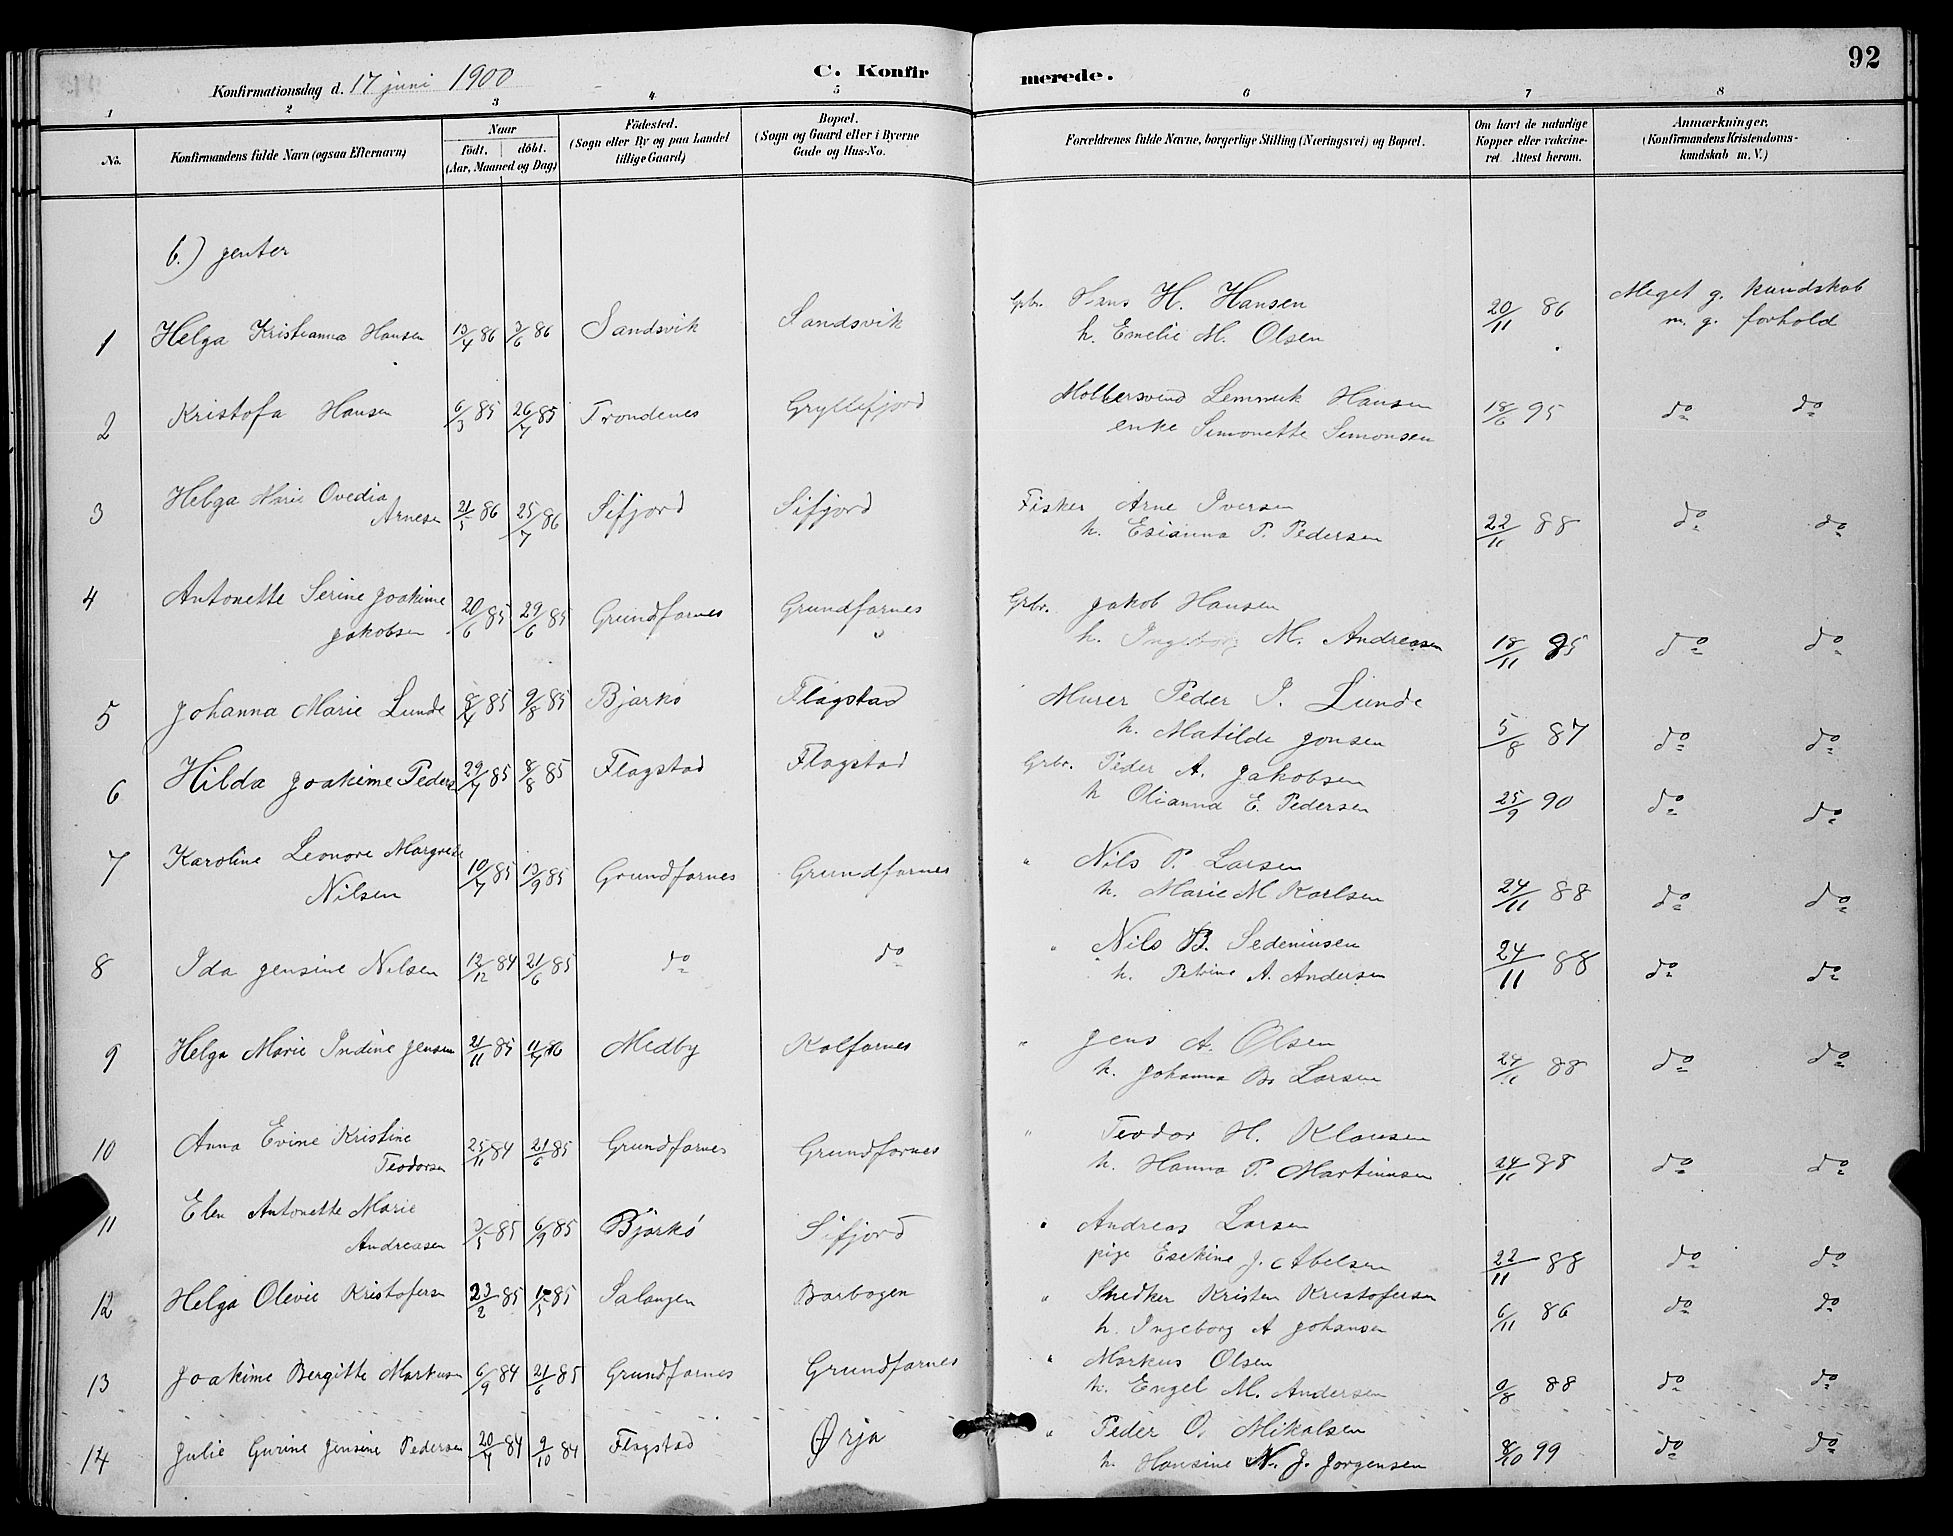 92
Konfirmationsdag d. 17 juni 1900 C. Konfirmerede.
1 2 3 4 5 6 7 8
No. Konfirmandens fulde Navn (ogsaa Efternavn) Naar födt. döbt. (Aar, Maaned og Dag) Födested. (Sogn eller By og paa Landet tillige Gaard) Bopæl. (Sogn og Gaard eller i Byerne Gade og Hus-No. Forældrenes fulde Navne, borgerlige Stilling (Næringsvei) og Bopæl. Om havt de naturlige Kopper eller vakcineret Attest herom. Anmærkninger. (Konfirmandens Kristendomskundskab m. V.)
b.) jenter
1 Helga Kristianna Hansen 13/4 86 3/6 86 Sandsvik Sandsvik Grbr. Hans H. Hansen 20/11 86 Meget g. kundskab
h. Emelie M. Olsen m. g. forhold
2 Kristofa Hansen 6/3 85 26/7 85 Trondenes Gryllefjord Hansen 18/6 95 do do
enke Simonette Simonsen
3 Helga Marie Ovedia 21/5 86 25/7 86 Sifjord Sifjord Fisker Arne Iversen 22/11 88 do do
Arnesen h. Esianna P. Pedersen
4 Antonette Serine Joakime 20/6 85 29/6 85 Grundfarnes Grundfarnes Grbr. Jakob Hansen
Jakobsen h. Ingeborg M. Andreasen 18/11 95 do do
5 Johanna Marie Lunde 8/4 85 9/8 85 Bjarkö Flagstad Murer Peder J. Lunde
h. Matilde Jonsen 5/8 87 do do
6 Hilda Joakime Peders 29/4 85 8/8 85 Flagstad Flagstad Grbr. Peder A. Jakobsen
h Olianna E. Pedersen 25/9 90 do do
7 Karoline Leonore Margrete 10/7 85 13/9 85 Grundfarnes Grundfarnes " Nils P. Larsen
Nilsen h. Marie M Karlsen 24/11 88 do do
8 Ida Jensine Nilsen 12/12 84 21/6 85 do do " Nils B. Sedeniusen 24/11 88 do do
h. Petrine A. Andersen
9 Helga Marie Indine Jensen 21/11 85 11/4 86 Medby Kalfarnes " Jens A. Olsen
h. Johanna Larsen 24/11 88 do do
10 Anna Evine Kristine 25/11 84 21/6 85 Grundfarnes Grundfarnes " Teodor H. Klausen
Teodorsen h. Hanna P. Martinusen 24/11 98 do do
11 Elen Antonette Marie 3/5 85 6/9 85 Bjarkö Sifjord " Andreas Larsen
Andreasen pige Esekine J. Abelsen 22/11 88 do do
12 Helga Olivie Kristofersn 23/2 85 85 Salangen Barbogen " Snedker Kristen Kristofersen
h. Ingeborg A Johansen 6/11 86 do do
13 Joakime Bergitte Markusen 6/9 84 21/6 85 Grundfarnes Grundfarnes " Markus Olsen
h. Engel M. Andersen 9/8 88 do do
14 Julie Gurine Jensine Pedersen 20/7 84 9/10 84 Flagstad Ørja " Peder O. Mikalsen
h. Hansine N. J. Jorgensen 8/10 99 do do